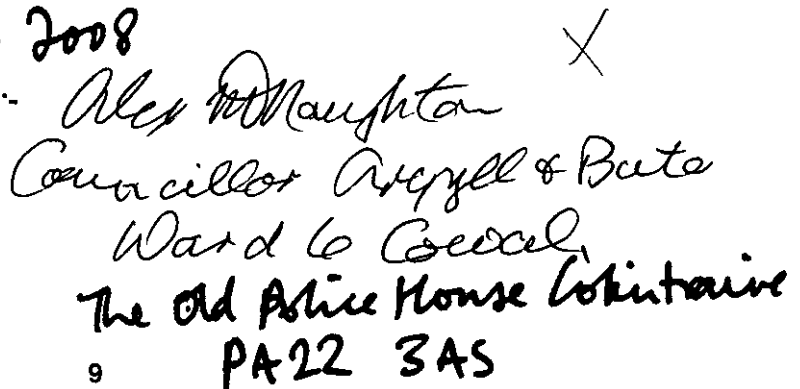 2008
X
Alex McNaughton
Councillor Argyll & Bute
Ward 6 Cowal,
The Old Police House Colintraive
9 PA22 3AS